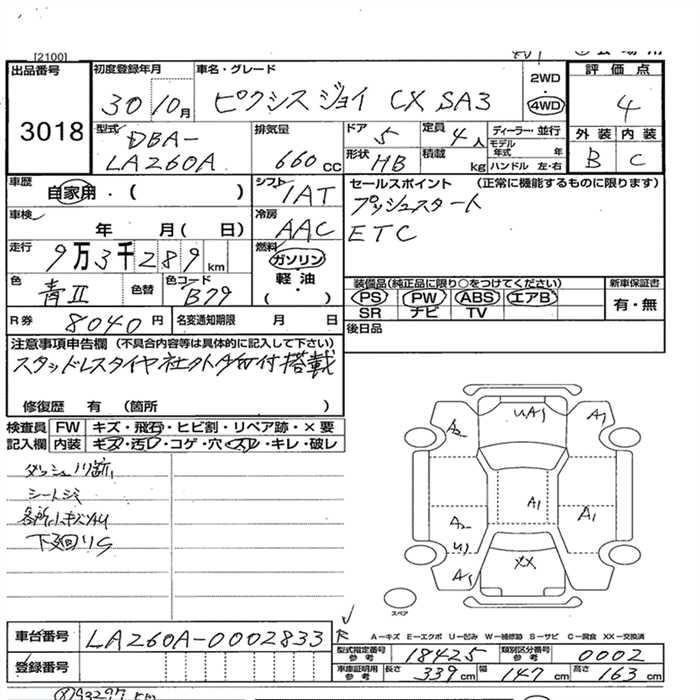 [2100]
出品番号
3018
初度登録年月
30 10月
車名・グレード
ピクシス ジョイ CX SA3
2WD
4WD
評価点
4
外装 内装
B C
型式
DBA-
LA260A
排気量
660 cc
ドア 5
形状 HB
定員 4人
積載 kg
ディーラー・並行
モデル年式 年
ハンドル 左・右
車歴
自家用・( )
シフト
IAT
セールスポイント (正常に機能するものに限ります)
プッシュスタート
ETC
車検
年 月( 日)
冷房
AAC
走行
9万3千289 km
燃料
ガソリン
軽・油
( )
色
青II
色替
色コード
B79
装備品(純正品に限り○をつけてください)
PS PW ABS エアB
SR ナビ TV
新車保証書
有・無
R券
8040円
名変通知期限 月 日
後日品
注意事項申告欄 (不具合内容等は具体的に記入して下さい)
スタッドレスタイヤ社外AW付搭載
修復歴 有 (箇所 )
検査員 FW キズ・飛石・ヒビ割・リペア跡・×要
記入欄 内装 キズ・汚レ・コゲ・穴・スレ・キレ・破レ
ダッシュ
シートシミ
各所小キズ
下廻りS
UA1
A2
A1
A1
A1
A2
U1
A1
XX
スペア
R
A-キズ E-エクボ U-凹み W-補修跡 S-サビ C-腐食 XX-交換済
車台番号
LA260A-0002833
登録番号
型式指定番号 参考 18425
類別区分番号 参考 0002
車庫証明用 参考 長さ 339cm 幅 147cm 高さ 163cm
93297 km